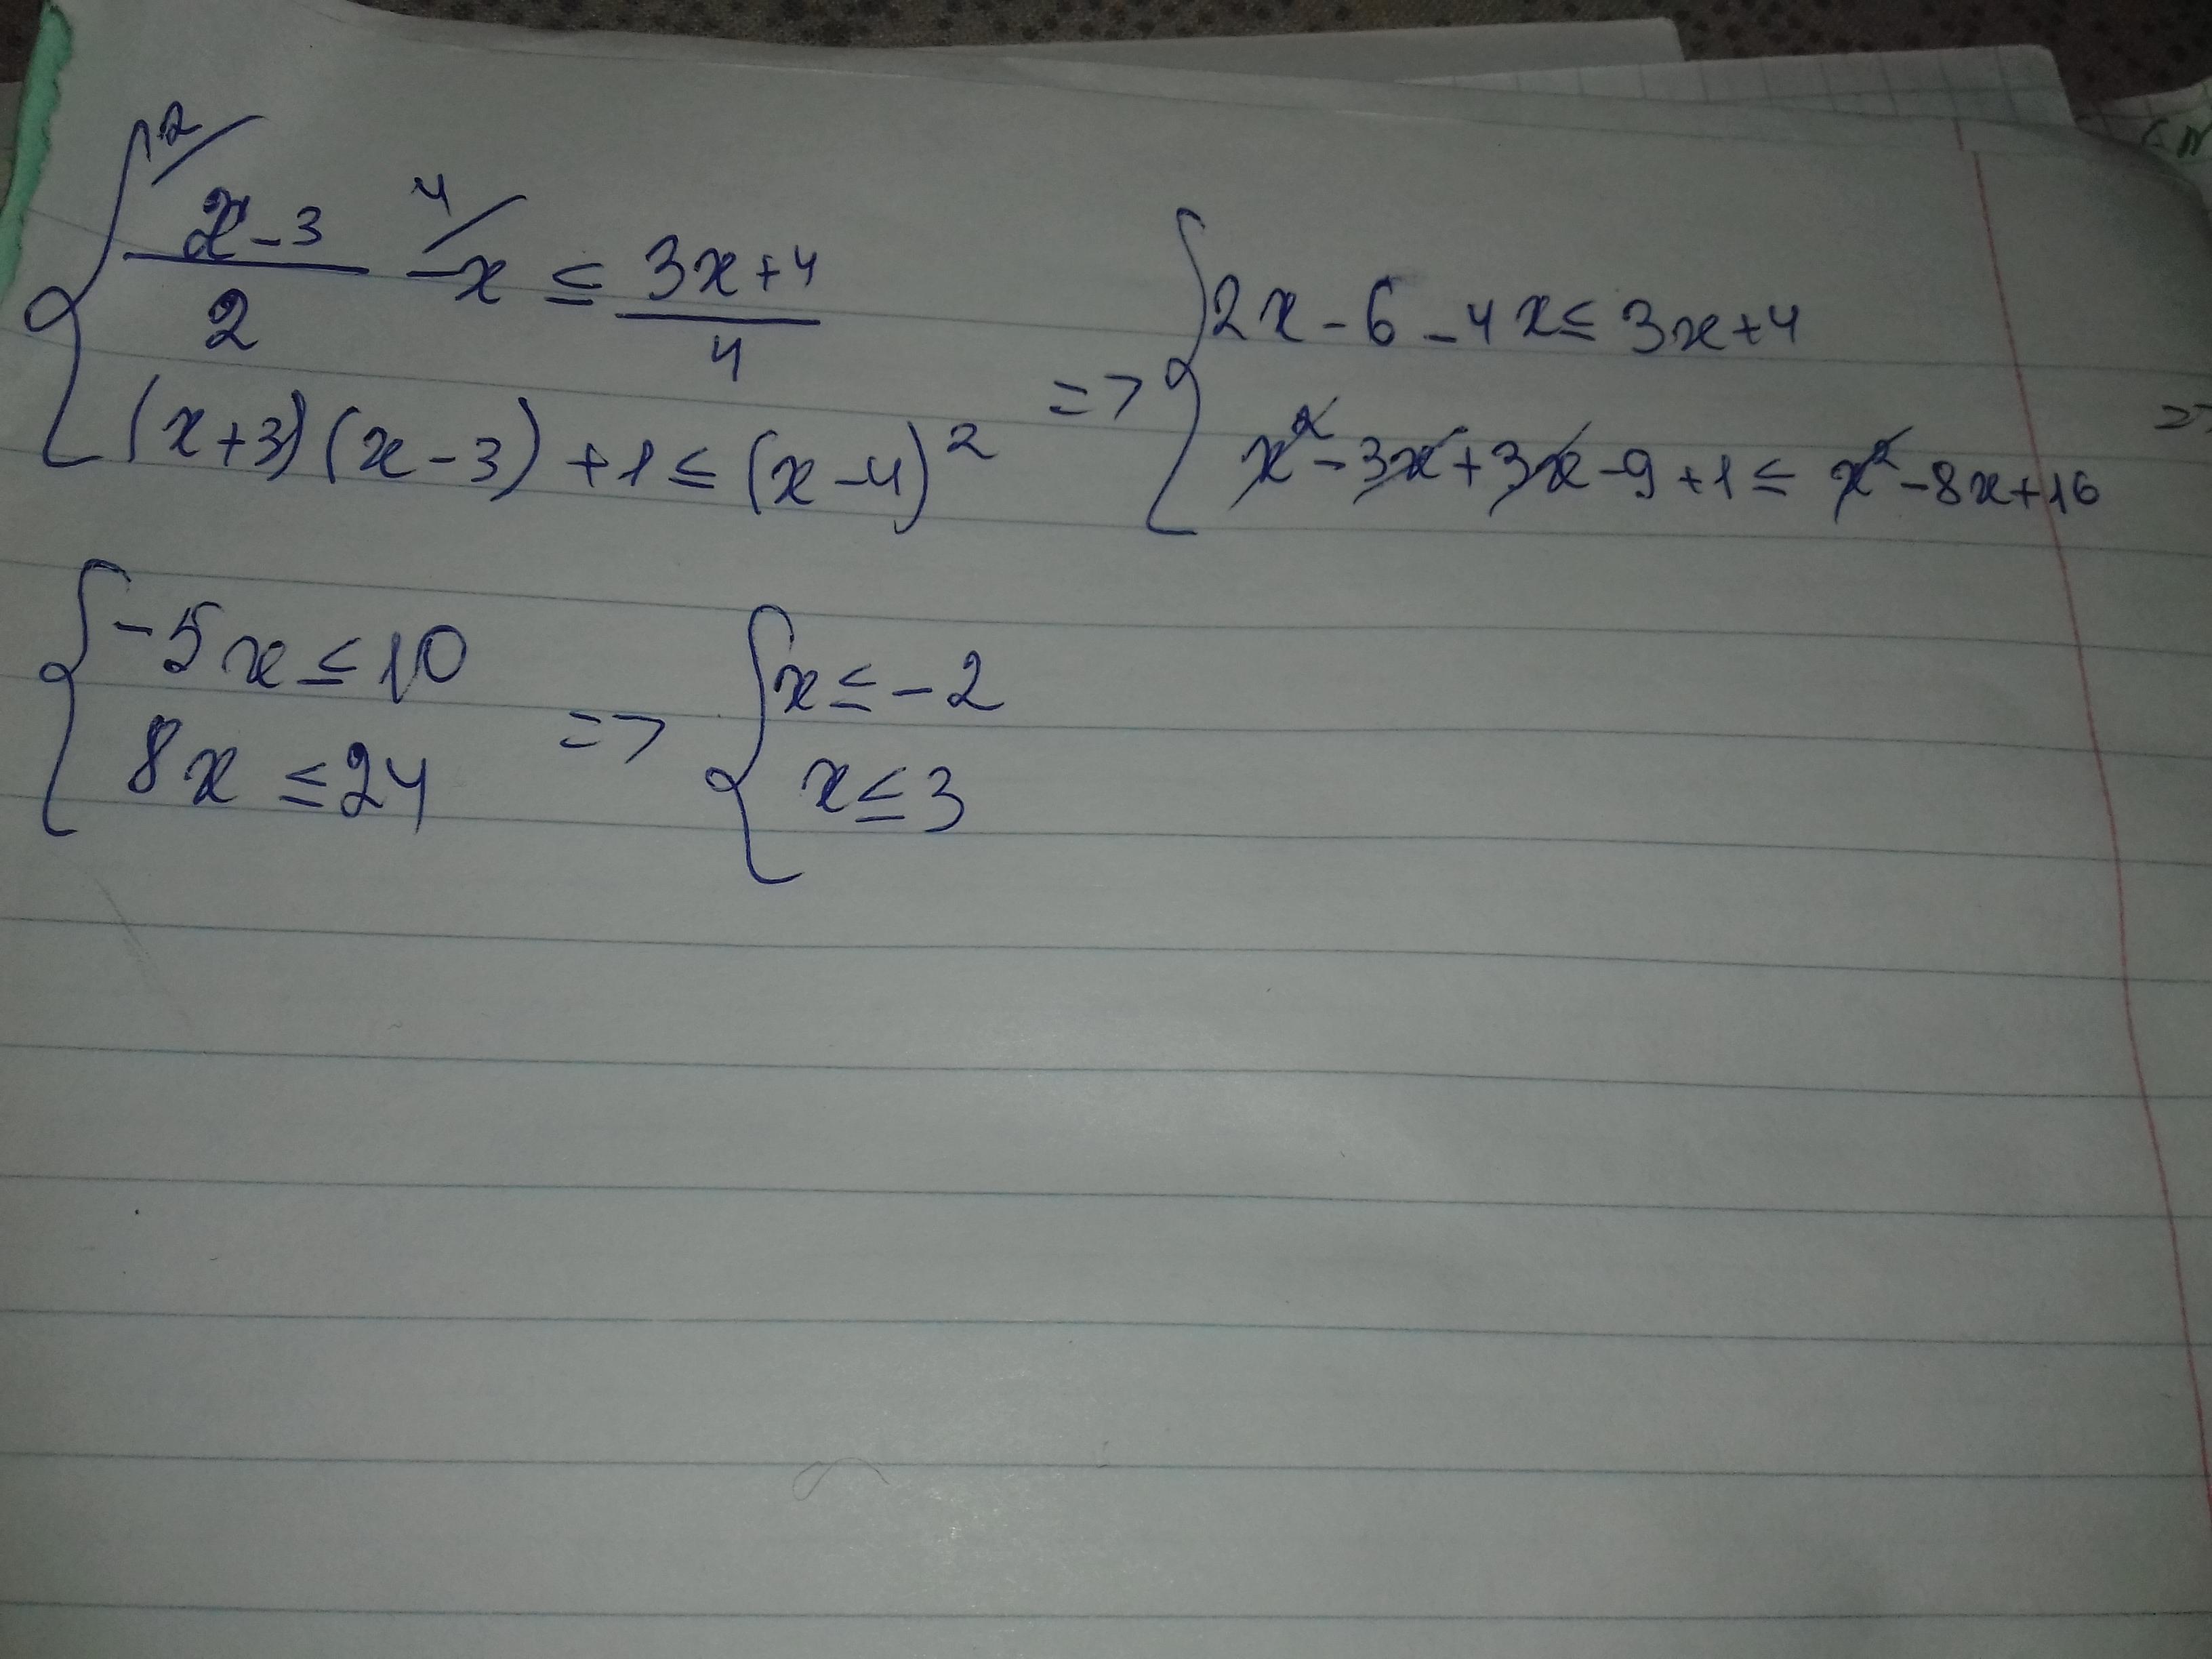 { 2/ (x-3)/2 4/ -x ≤ (3x+4)/4
(x+3)(x-3)+1 ≤ (x-4)²
=> { 2x-6-4x ≤ 3x+4
x²-3x+3x-9+1 ≤ x²-8x+16 =>
{ -5x ≤ 10
8x ≤ 24
=> { x ≤ -2
x ≤ 3